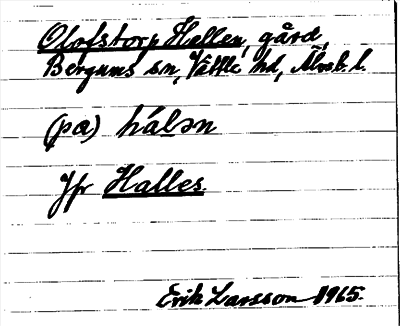 Olofstorp Hallen, gård,
Bergums sn, Vättle hd, Älvsb. l.
(pa) hálən
Jfr Halles
Erik Larsson 1965.